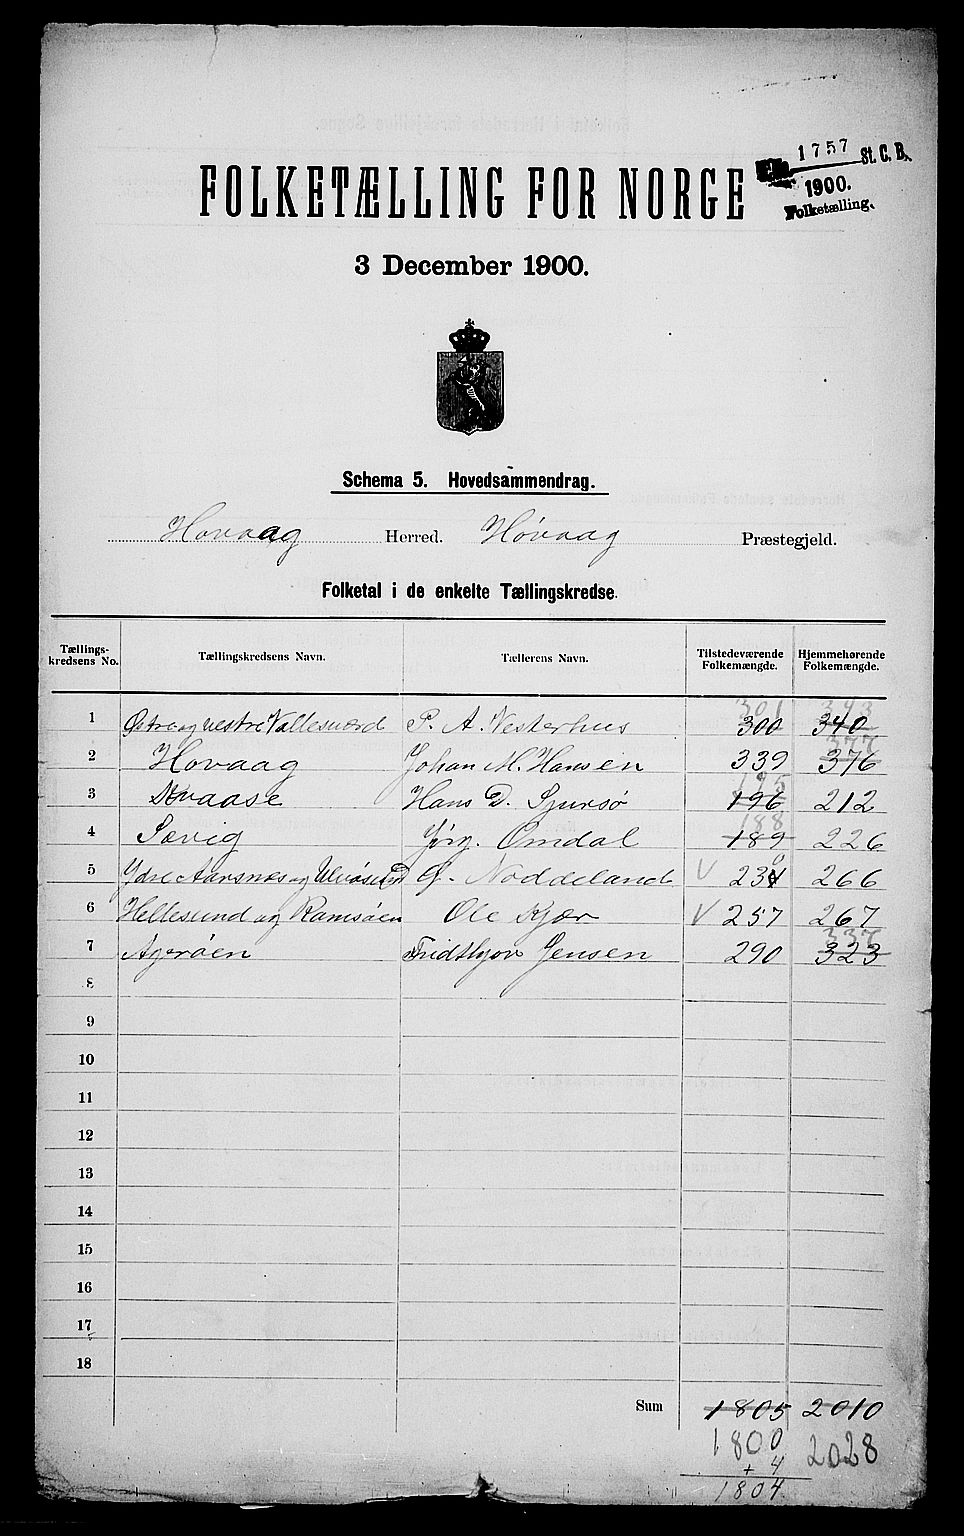 1757 St. C. B.
1900.
Folketælling.
FOLKETÆLLING FOR NORGE
3 December 1900.
Schema 5. Hovedsammendrag.
Hovaag Herred. Høvaag Præstegjeld.
Folketal i de enkelte Tællingskredse.
Tællings-kredsens No. Tællingskredsens Navn. Tællerens Navn. Tilstedeværende Folkemængde. Hjemmehørende Folkemængde.
301 343
1 Østre og vestre Vallesværd P. A. Vesterhus 300 340
377
2 Hovaag Johan M. Hansen 339 376
195
3 Kvaase Hans D. Sjursø 196 212
188
4 Sævig Jørg. Omdal 189 226
0
5 Ydre Aarsnæs og Ulvøsund G. Noddeland V 234 266
6 Hellesund og Ramsøen Ole Kjær V 257 267
337
7 Agerøen Fridthjov Jensen 290 323
8
9
10
11
12
13
14
15
16
17
18
Sum 1805 2010
1800 2028
+ 4
1804.